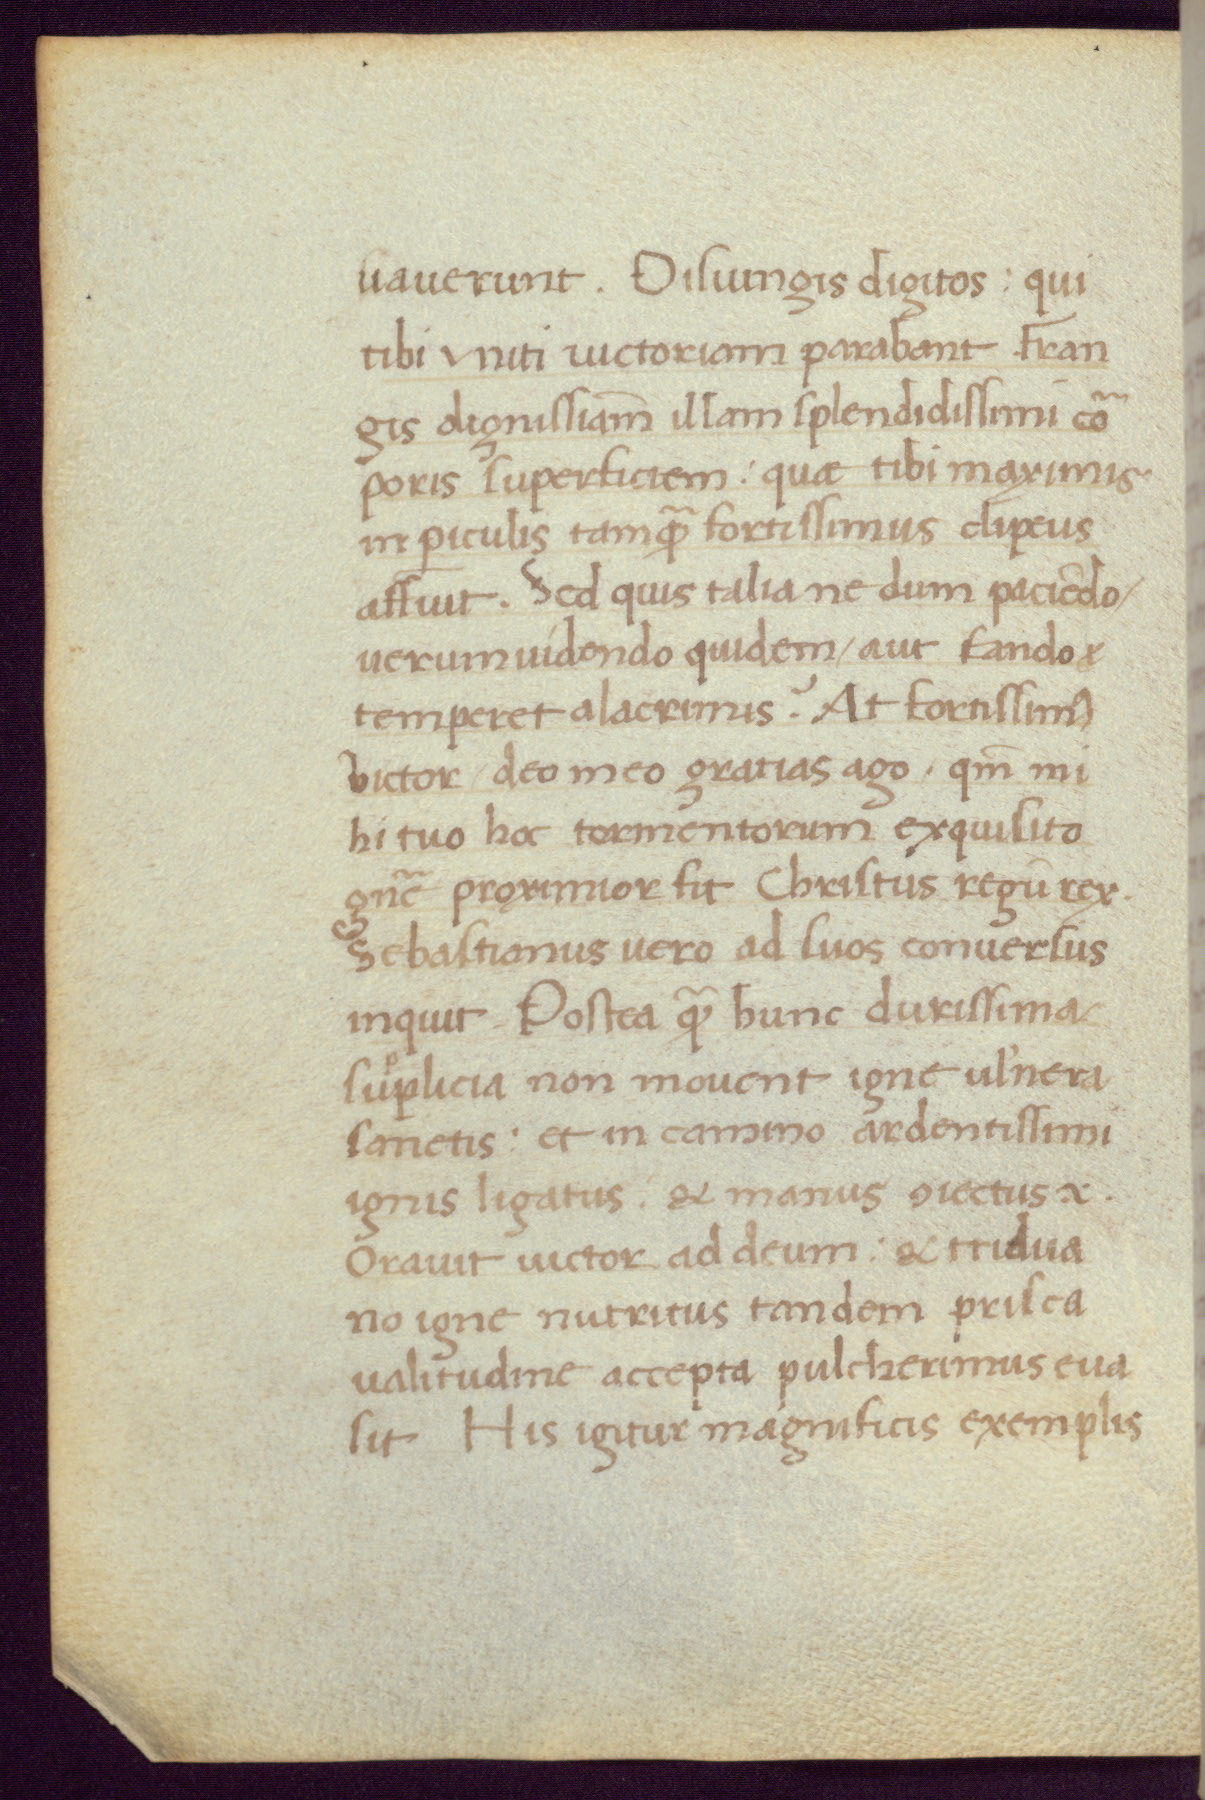 uauerunt. Disiungis digitos: qui
tibi vniti uictoriam parabant. Fran
gis dignissiam̄ illam splendidissimi cõ
poris superficiem: quæ tibi maximis
in ꝑiculis tamq̃ fortissimus clipeus
affuit. Sed quis talia ne dum paciẽdo/
uerum uidendo quidem/ aut fando
temperet a lacrimis? At fortissimꝰ
victor/ deo meo gratias ago. qm̄ mi
hi tuo hoc tormentorum exquisito
gñe proximior fit Christus regũ rex.
Sebastianus uero ad suos conuersus
inquit. Postea q̃ hunc durissima
supplicia non mouent igne uulnera
sanetis: et in camino ardentissimi
ignis ligatus: & manus ꝯiectus.
Orauit uictor ad deum: & tridua
no igne nutritus tandem prisca
ualitudine accepta pulcherimus eua
sit. His igitur magnificis exemplis